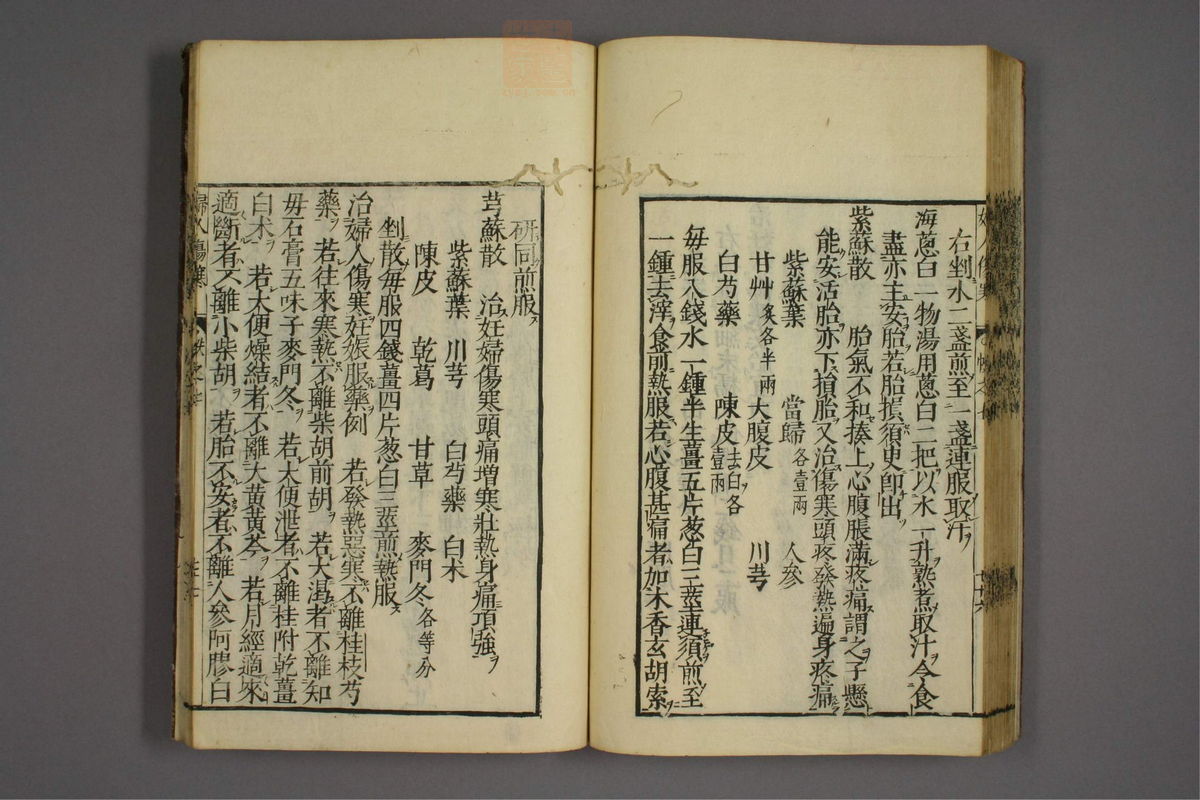 右剉水二盞煎至一盞連服取汁
海蔥白一物湯用蔥白二把以水一升熟煮取汁令食
盡亦主安胎若胎損須史卽出
紫蘇散　胎氣不和揍上心腹脹滿疼痛謂之子懸
能安活胎亦下損胎又治傷寒頭疼發熱遍身疼痛
紫蘇葉　當歸各壹兩　人參
甘艸炙各半兩　大腹皮　川芎
白芍藥　陳皮去白各壹兩
每服入錢水一鍾半生薑五片葱白三莖連須煎至
一鍾去滓食前熱服若心腹甚痛者加木香玄胡索
研同煎服
芎蘇散　治妊婦傷寒頭痛增寒壯熱身痛項強
紫蘇葉　川芎　白芍藥　白朮
陳皮　乾葛　甘草　麥門冬各等分
剉散每服四錢薑四片葱白三莖煎熱服
治婦人傷寒妊娠服藥例　若發熱惡寒不離桂枝芍
藥　若往來寒熱不離柴胡前胡　若大渴者不離知
毋石膏五味子麥門冬　若大便泄者不離桂附乾薑
白朮　若大便燥結者不離大黃黃芩　若月經適來
適斷者不離小柴胡　若胎不安者不離人參阿膠白
婦人傷寒